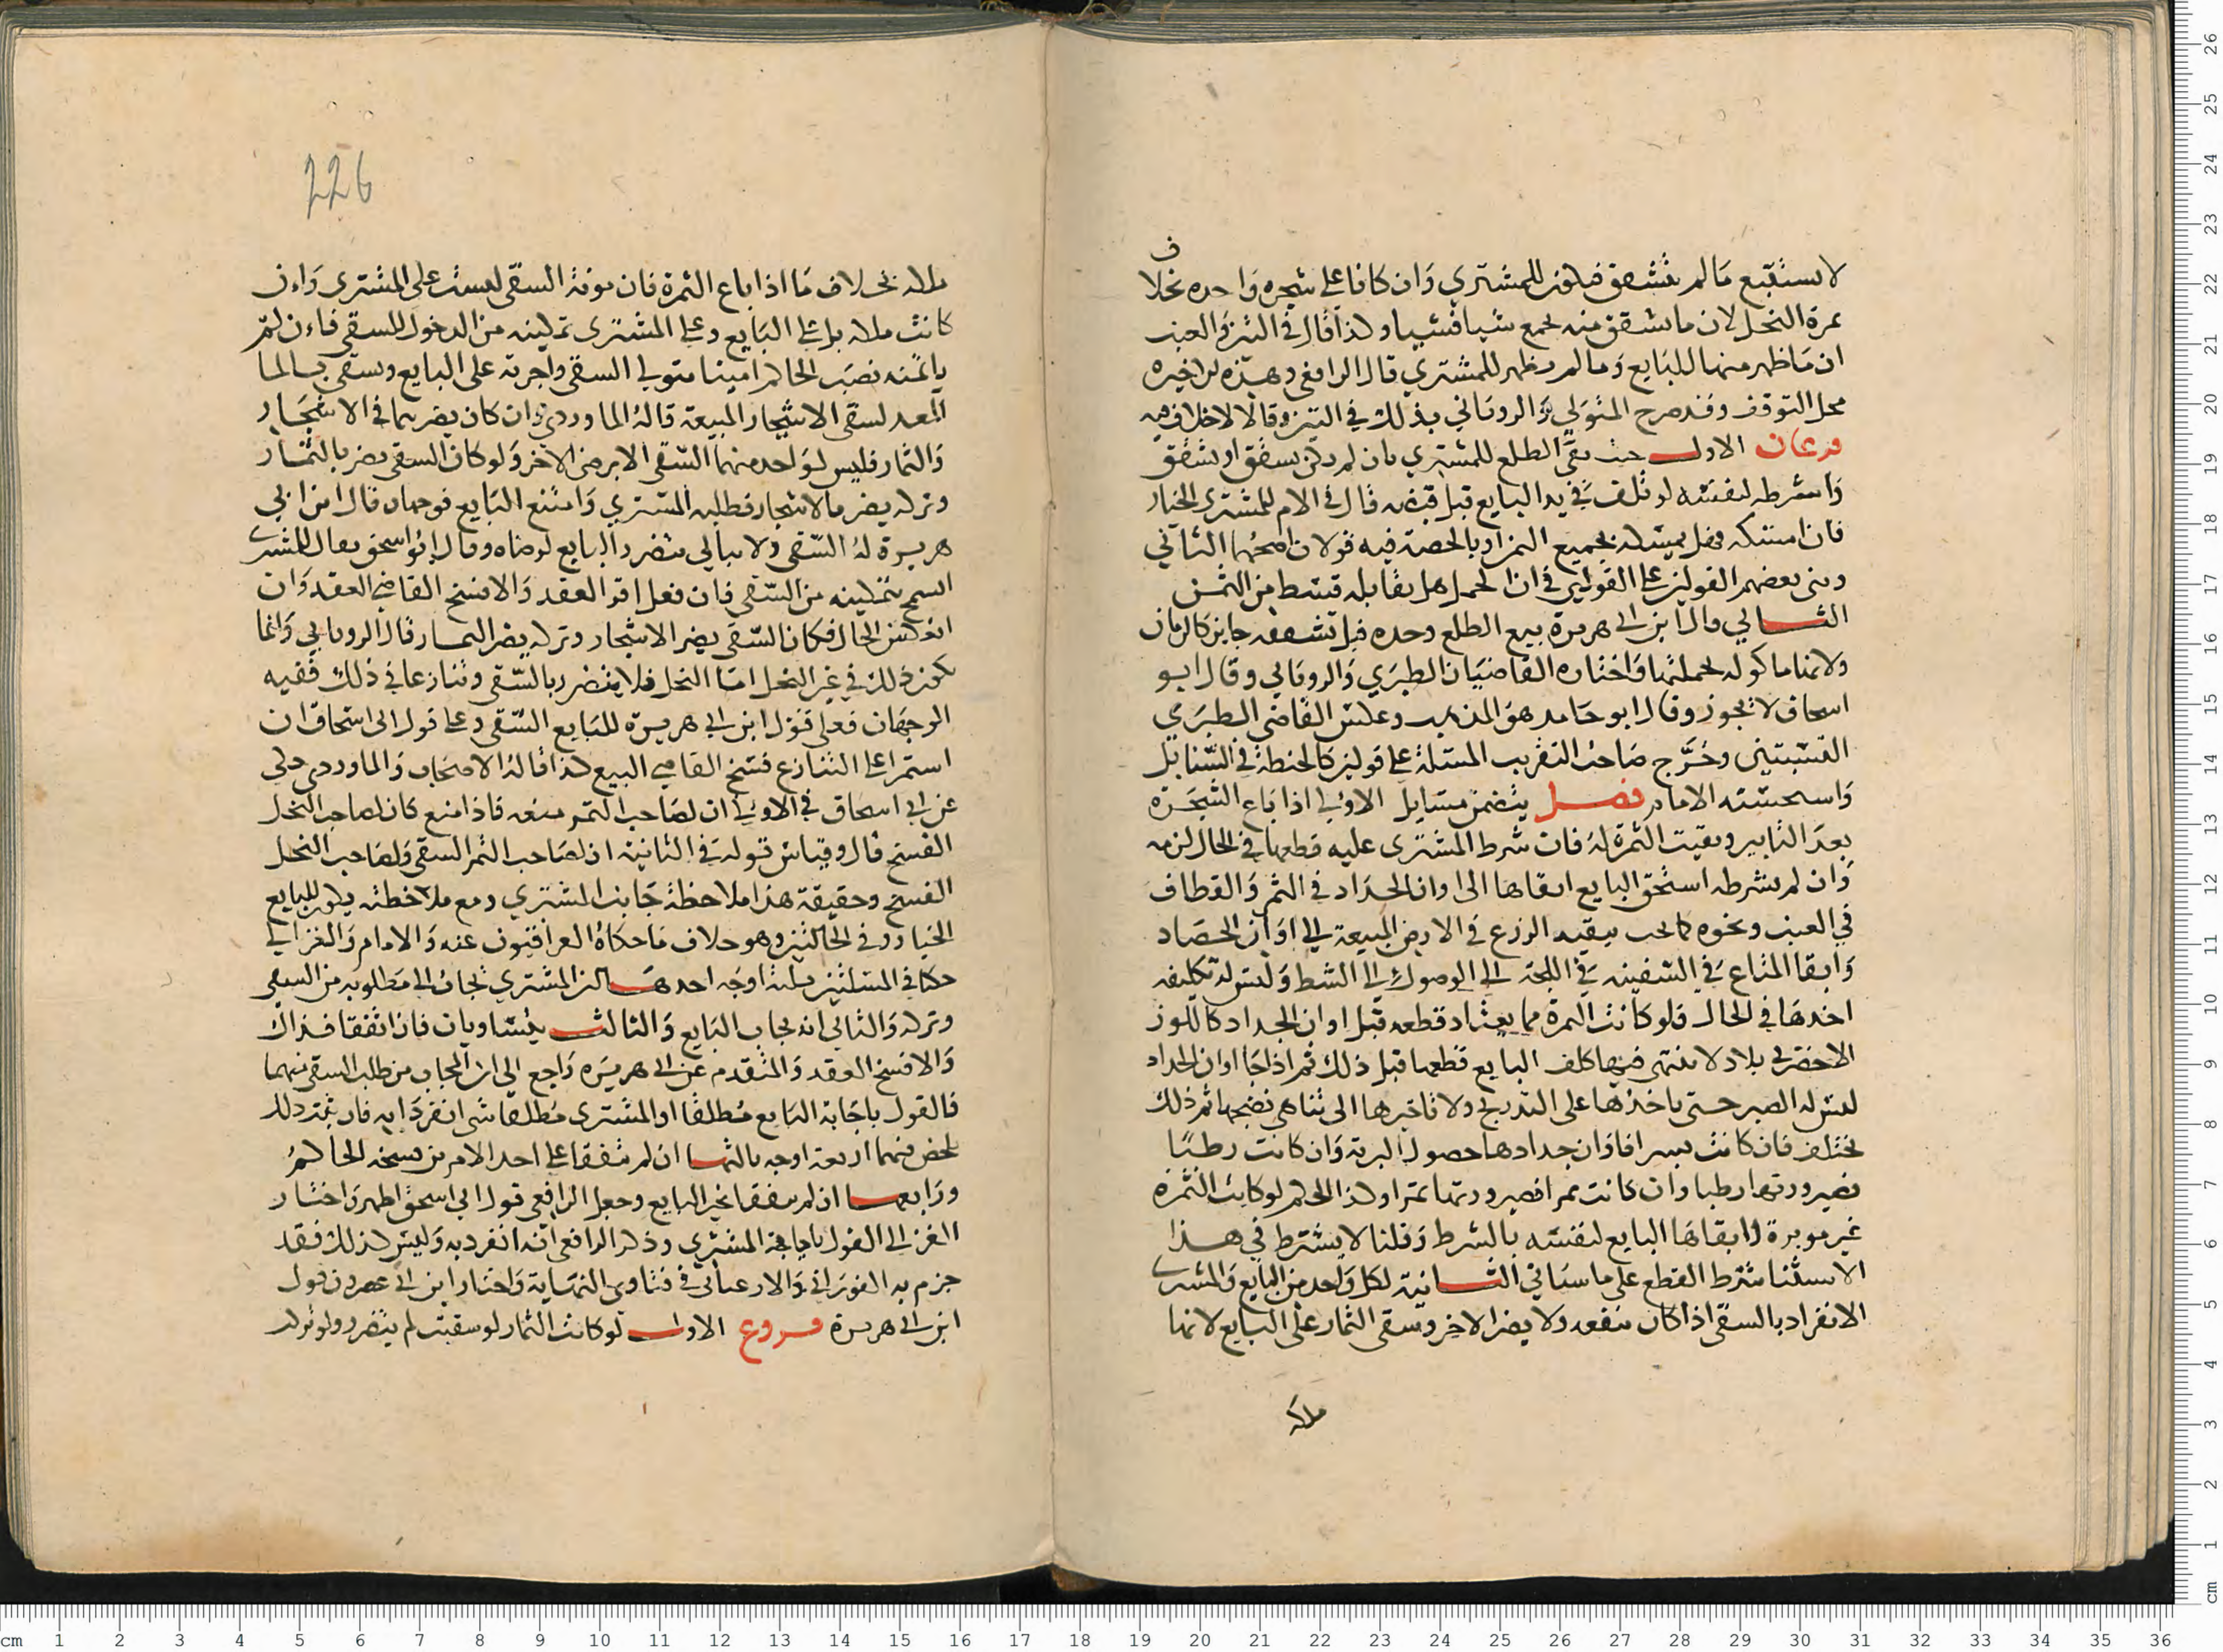 لا يستتبع مالم يتشقق فيكون للمشتري وان كانا على شجره واحده بخلاف
ثمرة النخل لان ما تشقق منه يجمع شيافشيا وكذا قال في التين والعنب
ان ما ظهر منها للبايع وما لم يظهر للمشتري قال الرافعي وهذه الاخيره
محل التوقف وقد صرح المتولي والروياني بذلك في التين وقالا لا خلاف فيه
فرعان الاول حيث بقى الطلع للمشتري بان لم يكن يشقق او تشقق
واشرطه لنفسه لو تلف في يد البايع قبل قبضه قال في الام للمشتري الخيار
فان امسكه فهل يمسكه بجميع الثمن او بالحصة فيه قولان اصحهما الثاني
وبنى بعضهم القولين على القولين في ان الحمل هل يقابله قسط من الثمن
الثاني قال ابن ابي هريرة بيع الطلع وحده قبل تشققه جايز كالرمان
ولانهما ماكوله بجملتها واختاره القاضيان الطبري والروياني وقال ابو
اسحاق لا يجوز وقال ابو حامد هو المذهب وعكس القاضي الطبري
النسبتين وخرج صاحب التقريب المسئلة على قولين كالحنطة في السنابل
واستحسنه الامام فصل يتضمن مسايل الاولى اذا باع الشجرة
بعد التابير وبقيت الثمرة له فان شرط المشترى عليه قطعها في الحال لزمه
وان لم يشرطه استحق البايع ابقاها الى اوان الجداد في الثمر والقطاف
في العنب ونحوه كما يجب تبقيه الزرع في الارض المبيعة الى اوان الحصاد
وابقا المتاع في السفينه في اللجة الى الوصول الى الشط وليس له تكليفه
اخذها في الحال فلو كانت الثمرة مما يعتاد قطعه قبل اوان الجداد كاللوز
الاخضر في بلاد لا تنتهي فيها كلف البايع قطعها قبل ذلك ثم اذا جا اوان الجداد
ليس له الصبر حتى ياخذها على التدريج ولا تاخيرها الى تناهي نضجها ثم ذلك
يختلف فان كانت بسرا فاوان جدادها حصول البرية وان كانت رطبا
فصيرورتها رطبا وان كانت تمرا فصيرورتها تمرا وكذا الحكم لو كانت الثمرة
غير موبرة وابقاها البايع لنفسه بالشرط وقلنا لا يشترط في هذا
الاستثنا شرط القطع على ما سياتي الثانية لكل واحد من البايع والمشترى
الانفراد بالسقى اذا كان ينفعه ولا يضر الاخر وسقى الثمار على البايع لانها
ملكه
226
ملكه بخلاف ما اذا باع الثمرة فان مونة السقى ليست على المشترى وان
كانت ملكه بل على البايع وعلى المشترى تمكينه من الدخول للسقى فان لم
ياتمنه نصب الحاكم امينا متولى السقى واجرته على البايع ويسقى بالما
المعد لسقى الاشجار المبيعة قاله الماوردي وان كان يضر بهما في الاشجار
والثمار فليس لواحد منهما السقى الا برضى الاخر ولو كان السقى يضر بالثمار
وتركه يضر بالاشجار فطلبه المشتري وامتنع البايع فوجهان قال ابن ابي
هريرة له السقى ولا يبالي بتضرر البايع لرضاه وقال ابو اسحق يقال للمشترى
اسمح بتمكينه من السقى فان فعل اقر العقد والا فسخ القاضي العقد وان
انعكس الحال فكان السقى يضر الاشجار وتركه يضر الثمار قال الروياني وانما
يكون ذلك في غير النخل اما النخل فلا يتضرر بالسقى وتنازعا في ذلك ففيه
الوجهان فعلى قول ابن ابي هريره للبايع السقى وعلى قول ابى اسحاق ان
استمرا على التنازع فسخ القاضي البيع كذا قاله الاصحاب والماوردي حكى
عن ابي اسحاق في الاولى ان لصاحب الثمر منعه فاذا منع كان لصاحب النخل
الفسخ قال وقياس قوله في الثانية ان لصاحب الثمر السقى ولصاحب النخل
الفسخ وحقيقة هذا ملاحظة جانب المشتري ومع ملاحظته يكون للبايع
الخيار وفي الحالتين وهو خلاف ما حكاه العراقيون عنه والامام والغزالي
حكا في المسئلتين ثلثة اوجه احدها ان المشتري يجاب الى مطلوبه من السقى
وتركه والثاني انه يجاب البايع والثالث يتساويان فان اتفقا فذاك
والا فسخ العقد والمتقدم عن ابي هريره راجع الى ان المجاب من طلب السقى منهما
فالقول باجابة البايع مطلقا او المشترى مطلقا شي انفردا به فان ثبت ذلك
تلخص منهما اربعة اوجه ثالثها ان لم يتفقا على احد الامرين فسخه الحاكم
ورابعها ان لم يتفقا يجبر البايع وجعل الرافعي قول ابي اسحق اظهر واختار
الغزالي القول باجابة المشتري وذكر الرافعي انه انفرد به وليس كذلك فقد
جزم به الفوراني والارغياني في فتاوى النهاية واختار ابن ابي عصرون قول
ابن ابي هريرة فروع الاول لو كانت الثمار لو سقيت لم يتضرر ولو ترك